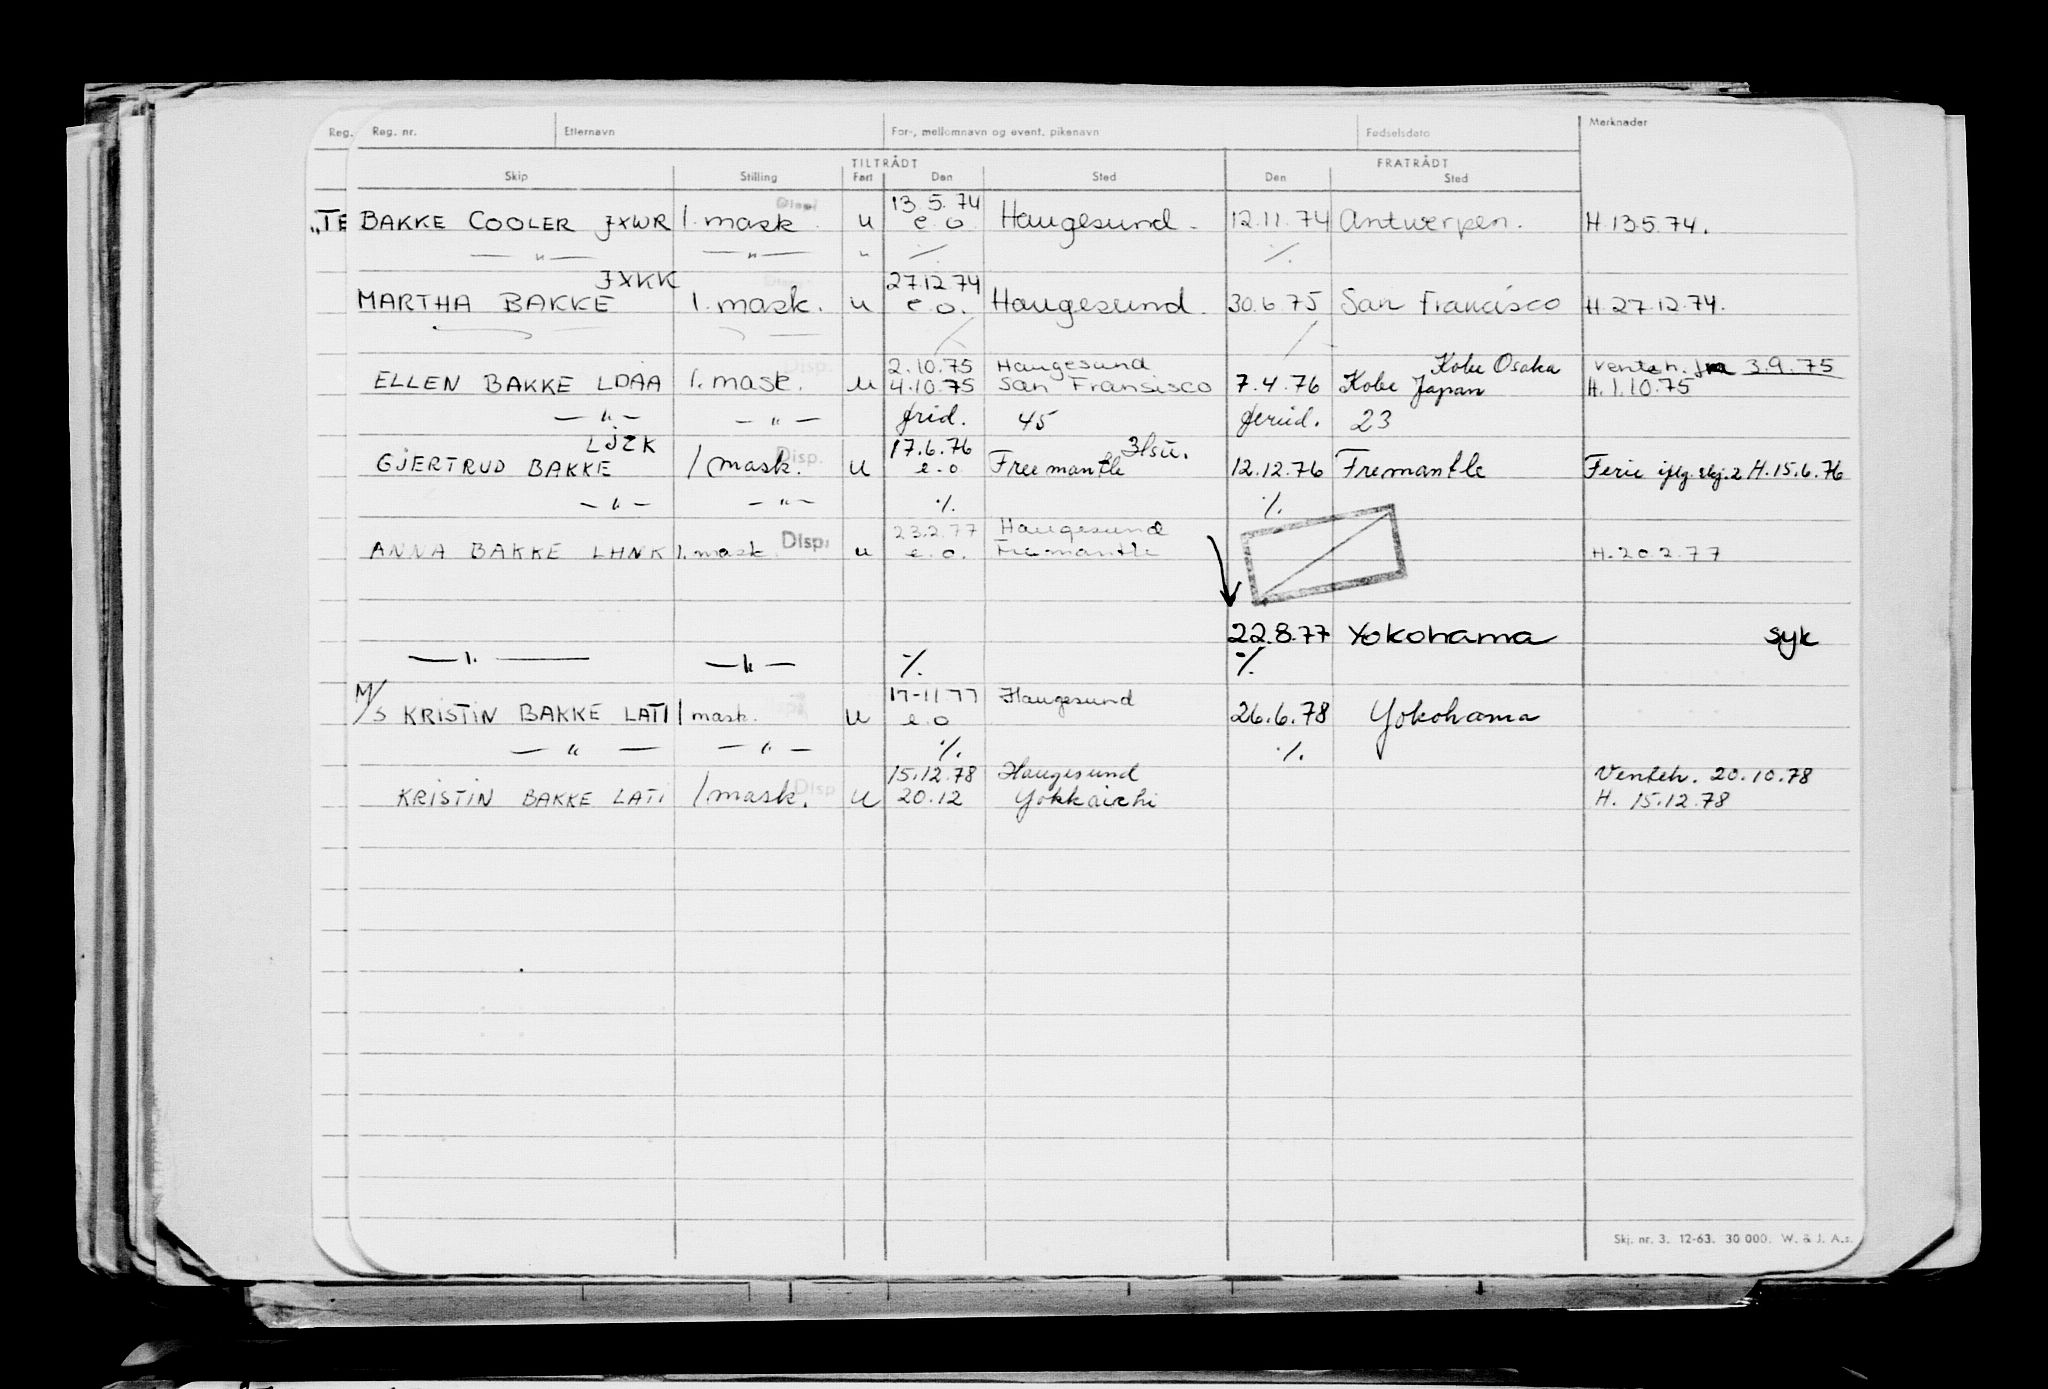 Reg. Reg. nr. Etternavn For-, mellomnavn og event. pikenavn Fødselsdato Merknader
TILTRÅDT FRATRÅDT
Skip Stilling Fart Den Sted Den Sted
Disp. 13.5.74
"TE BAKKE COOLER JXWR 1. mask. u e.o. Haugesund. 12.11.74 Antwerpen. H.13.5.74.
— " — — " — " ./. ./.
JXKK 27.12.74
MARTHA BAKKE 1. mask. u e.o. Haugesund. 30.6.75 San Francisco H.27.12.74.
Disp. 2.10.75 Haugesund Kobe Osaka Venteh. 3.9.75
ELLEN BAKKE LDAA 1. mask. u 4.10.75 San Fransisco 7.4.76 Kobe Japan H.1.10.75
— " — — " — frid. 45 23
LJZK Disp. 17.6.76
GJERTRUD BAKKE 1 mask. u e.o. Freemantle 12.12.76 Fremantle Ferie iflg. skj. 2 H.15.6.76
— " — — " — ./. ./.
23.2.77 Haugesund
ANNA BAKKE LHNK 1. mask. Disp. u e.o. Fremantle H.20.2.77
22.8.77 Yokohama syk
— " — — " — ./. ./.
17-11 77 Haugesund
M/S KRISTIN BAKKE LATI 1 mask. u e.o 26.6.78 Yokohama
— " — — " — ./. ./.
15.12.78 Haugesund Venteh. 20.10.78
KRISTIN BAKKE LATI 1 mask. Disp u 20.12 Yokkaichi H. 15.12.78
Skj. nr. 3. 12-63. 30 000. W. & J. A.s.